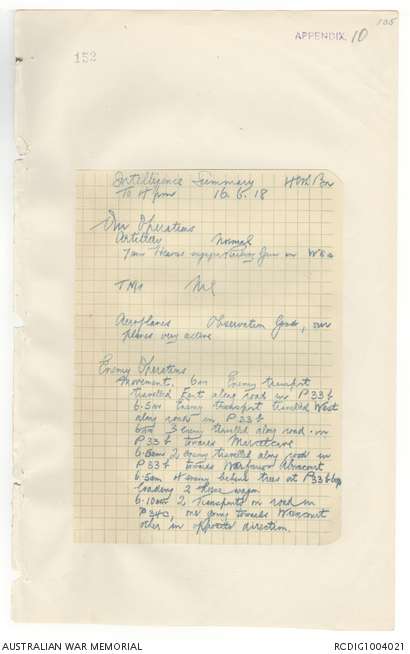 105
APPENDIX. 10
152
Intelligence Summary 48th Bn
To 4 pm 16.6.18
Our Operations
Artillery Normal
7am Heavies engaged enemy Gun in
T Ms Nil
Aeroplanes Observation Good, our
planes very active
Enemy Operations
Movement. 6am Enemy transport
travelled East along road in P 33 b
6.5am Enemy transport travelled West
along roads in P 33 b
6am 3 enemy travelled along road in
P 33 b towards
6.50am 2 enemy travelled along road in
P 33 b towards Warfusee Abancourt
6.50am 4 enemy behind trees at P 33 b
loading 2 horse wagon
6.10am 2 Transports on road in
one going towards
other in opposite direction.
AUSTRALIAN WAR MEMORIAL
RCDIG1004021